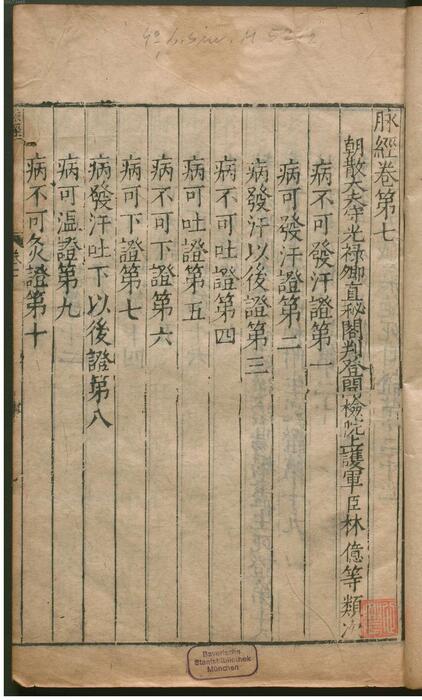 4° L. sin. H 52-2
脉經卷第七
朝散大夫守光祿卿直秘閣判登聞檢院上護軍臣林億等類次
病不可發汗證第一
病可發汗證第二
病發汗以後證第三
病不可吐證第四
病可吐證第五
病不可下證第六
病可下證第七
病發汗吐下以後證第八
病可溫證第九
病不可灸證第十
Bayerische
Staatsbibliothek
München